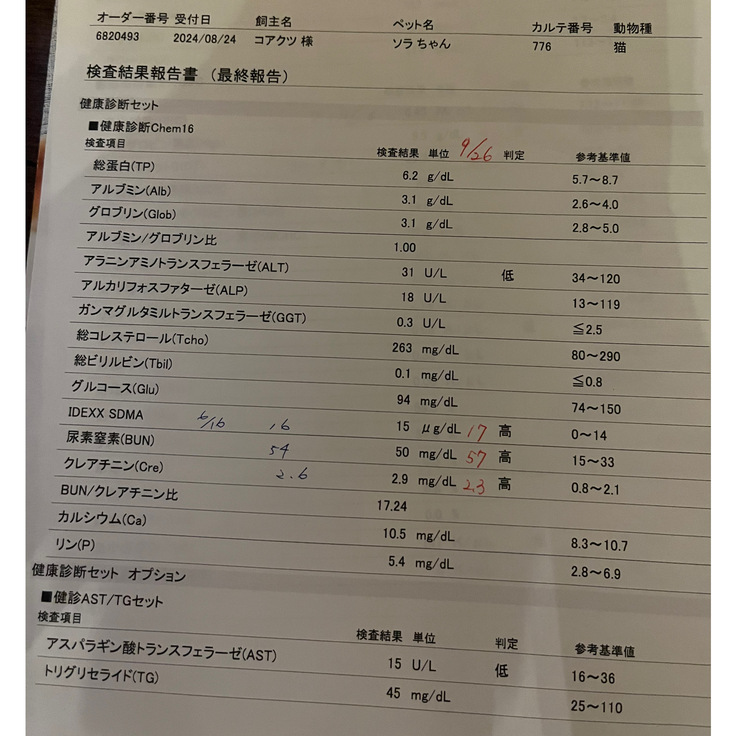 オーダー番号 受付日 飼主名 ペット名 カルテ番号 動物種
6820493 2024/08/24 コアクツ 様 ソラ ちゃん 776 猫
検査結果報告書 (最終報告)
健康診断セット
■健康診断Chem16
検査項目 検査結果 単位 9/26 判定 参考基準値
総蛋白(TP) 6.2 g/dL 5.7～8.7
アルブミン(Alb) 3.1 g/dL 2.6～4.0
グロブリン(Glob) 3.1 g/dL 2.8～5.0
アルブミン/グロブリン比 1.00
アラニンアミノトランスフェラーゼ(ALT) 31 U/L 低 34～120
アルカリフォスファターゼ(ALP) 18 U/L 13～119
ガンマグルタミルトランスフェラーゼ(GGT) 0.3 U/L ≦2.5
総コレステロール(Tcho) 263 mg/dL 80～290
総ビリルビン(Tbil) 0.1 mg/dL ≦0.8
グルコース(Glu) 94 mg/dL 74～150
IDEXX SDMA 6/16 16 15 μg/dL 17 高 0～14
尿素窒素(BUN) 54 50 mg/dL 57 高 15～33
クレアチニン(Cre) 2.6 2.9 mg/dL 2.3 高 0.8～2.1
BUN/クレアチニン比 17.24
カルシウム(Ca) 10.5 mg/dL 8.3～10.7
リン(P) 5.4 mg/dL 2.8～6.9
健康診断セット オプション
■健診AST/TGセット
検査項目 検査結果 単位 判定 参考基準値
アスパラギン酸トランスフェラーゼ(AST) 15 U/L 低 16～36
トリグリセライド(TG) 45 mg/dL 25～110